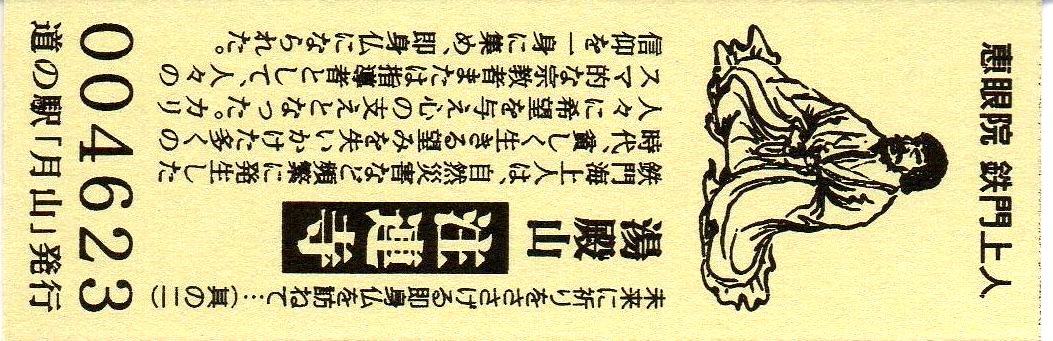 恵眼院 鉄門上人
未来に祈りをささげる即身仏を訪ねて…(其の二)
湯殿山 注連寺
鉄門海上人は、自然災害など頻繁に発生した
時代、貧しく生きる望みを失いかけた多くの
人々に希望を与え心の支えとなった。カリ
スマ的な宗教者または指導者として、人々の
信仰を一身に集め、即身仏になられた。
004623
道の駅「月山」発行